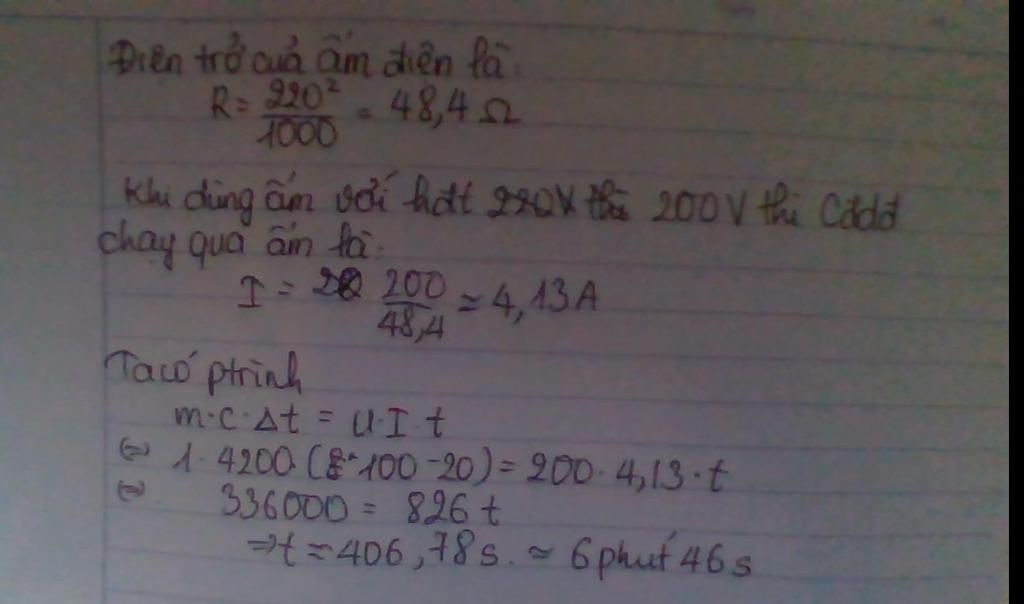 Điện trở của ấm điện là:
R = 220²/1000 = 48,4 Ω
Khi dùng ấm với hđt 220V thì 200V thì Cđdđ
chạy qua ấm là:
I = 200/48,4 ≈ 4,13A
Ta có ptrình
m.c.Δt = U.I.t
(=) 1.4200.(100-20) = 200.4,13.t
(=) 336000 = 826t
=> t ≈ 406,78s. ≈ 6 phút 46s